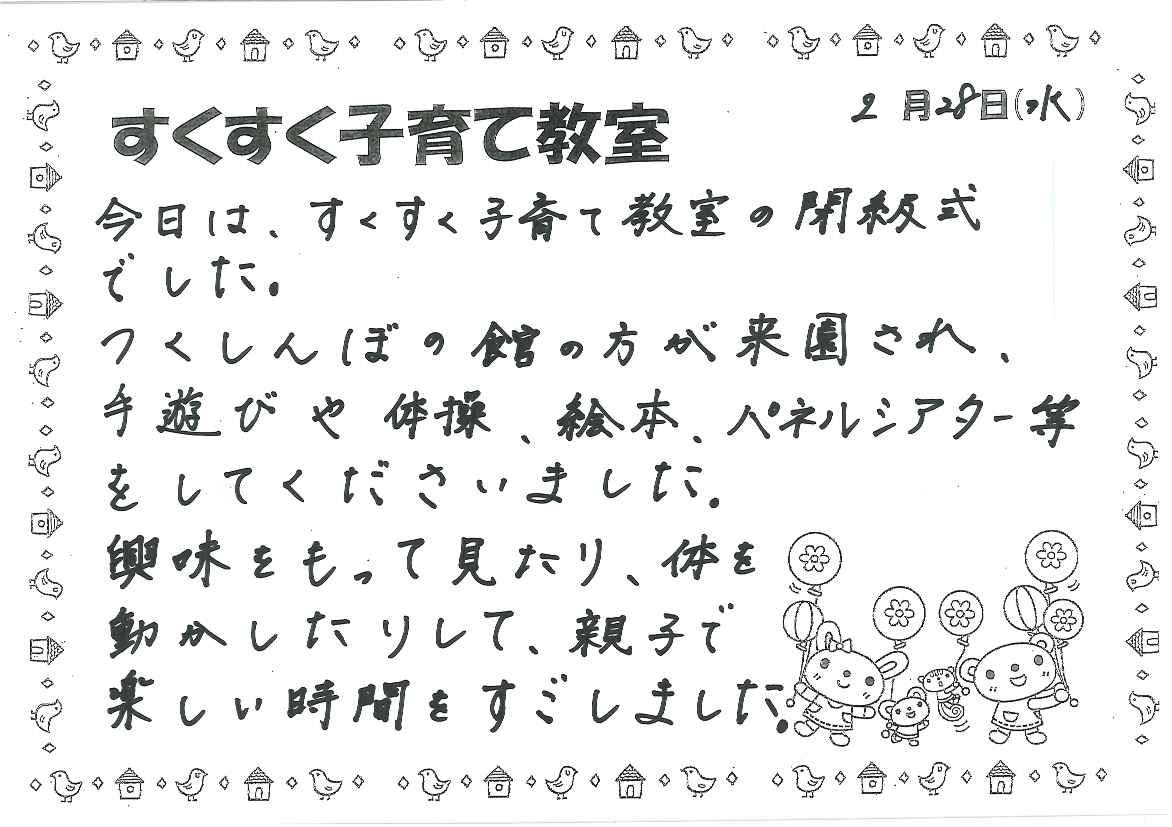 2月28日(水)
すくすく子育て教室
今日は、すくすく子育て教室の閉級式
でした。
つくしんぼの館の方が来園され、
手遊びや体操、絵本、パネルシアター等
をしてくださいました。
興味をもって見たり、体を
動かしたりして、親子で
楽しい時間をすごしました。